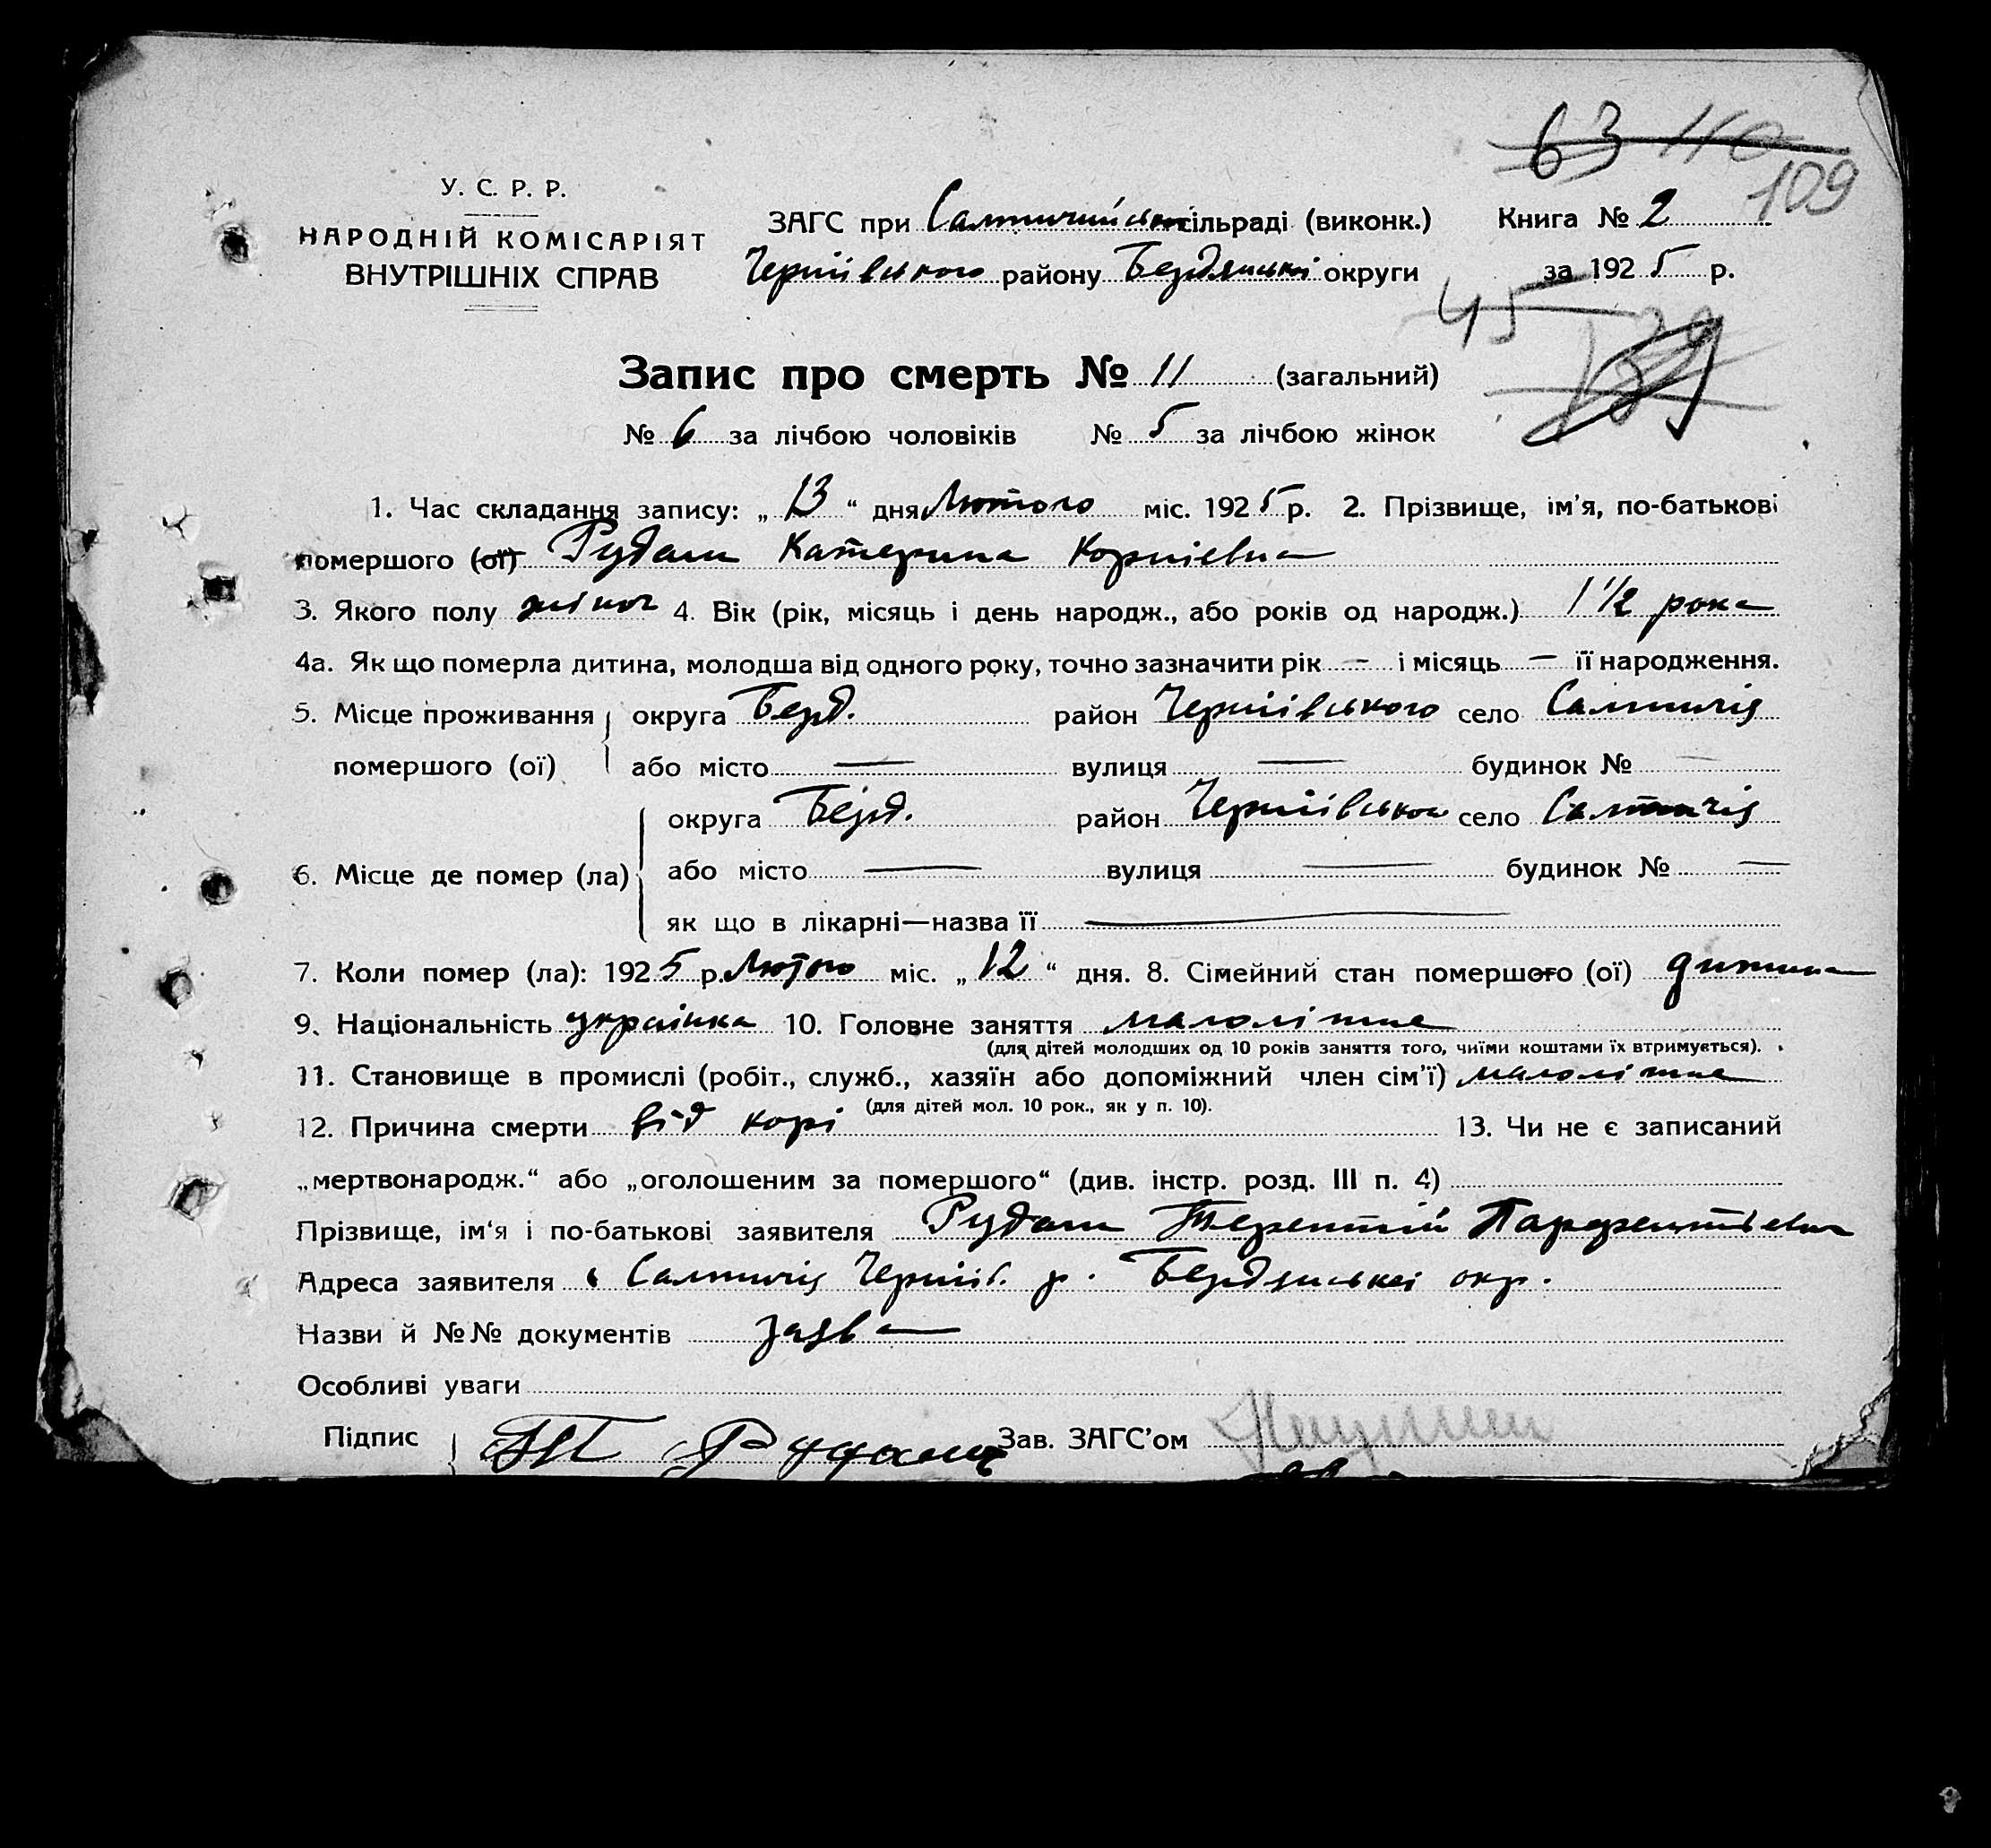 63 110
109
У. С. Р. Р.
НАРОДНІЙ КОМІСАРІЯТ
ВНУТРІШНІХ СПРАВ
ЗАГС при Салтичийськ сільраді (виконк.) Книга № 2
Чернівського району Бердянської округи за 1925 р.
45
139
Запис про смерть № 11 (загальний)
№ 6 за лічбою чоловіків № 5 за лічбою жінок
1. Час складання запису: „13“ дня Лютого міс. 1925 р. 2. Прізвище, ім'я, по-батькові
помершого (ої) Рудаш Катерина Корніевна
3. Якого полу жіноч 4. Вік (рік, місяць і день народж., або років од народж.) 1 1/2 рока
4а. Як що померла дитина, молодша від одного року, точно зазначити рік — і місяць — її народження.
5. Місце проживання округа Берд. район Чернівського село Салтичія
помершого (ої) або місто — вулиця — будинок № —
округа Берд. район Чернівського село Салтичія
6. Місце де помер (ла) або місто — вулиця — будинок № —
як що в лікарні—назва її —
7. Коли помер (ла): 1925 р. Лютого міс. „12“ дня. 8. Сімейний стан помершого (ої) дитина
9. Національність українка 10. Головне заняття малолітне
(для дітей молодших од 10 років заняття того, чиїми коштами їх втримується).
11. Становище в промислі (робіт., служб., хазяїн або допоміжний член сім'ї) малолітне
(для дітей мол. 10 рок., як у п. 10).
12. Причина смерти від корі 13. Чи не є записаний
„мертвонародж.“ або „оголошеним за помершого“ (див. інстр. розд. III п. 4)
Прізвище, ім'я і по-батькові заявителя Рудаш Терентій Парфентієвич
Адреса заявителя с Салтичія Черніг. р. Бердянської окр.
Назви й №№ документів заява
Особливі уваги
Підпис ТП Рудаш Зав. ЗАГС'ом